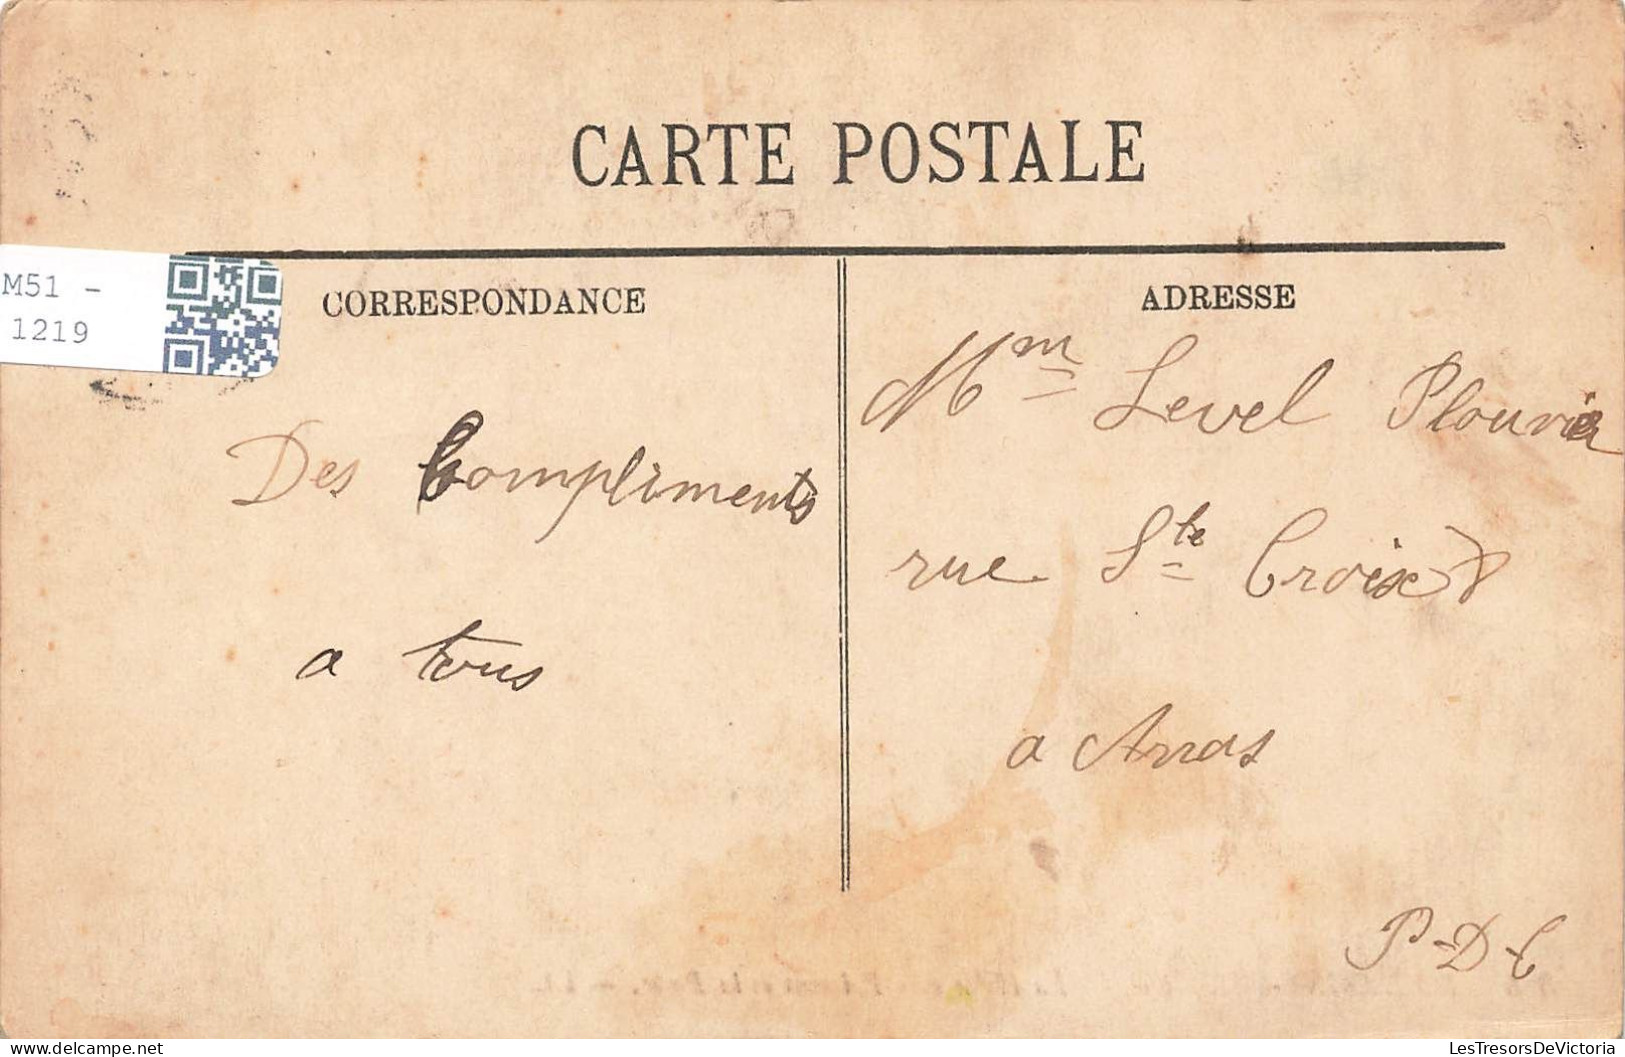 CARTE POSTALE
M51 -
1219
CORRESPONDANCE
ADRESSE
Des Compliments
a tous
Mm Level Plouvier
rue Ste Croix
a Arras
P-D-C
LesTresorsDeVictoria